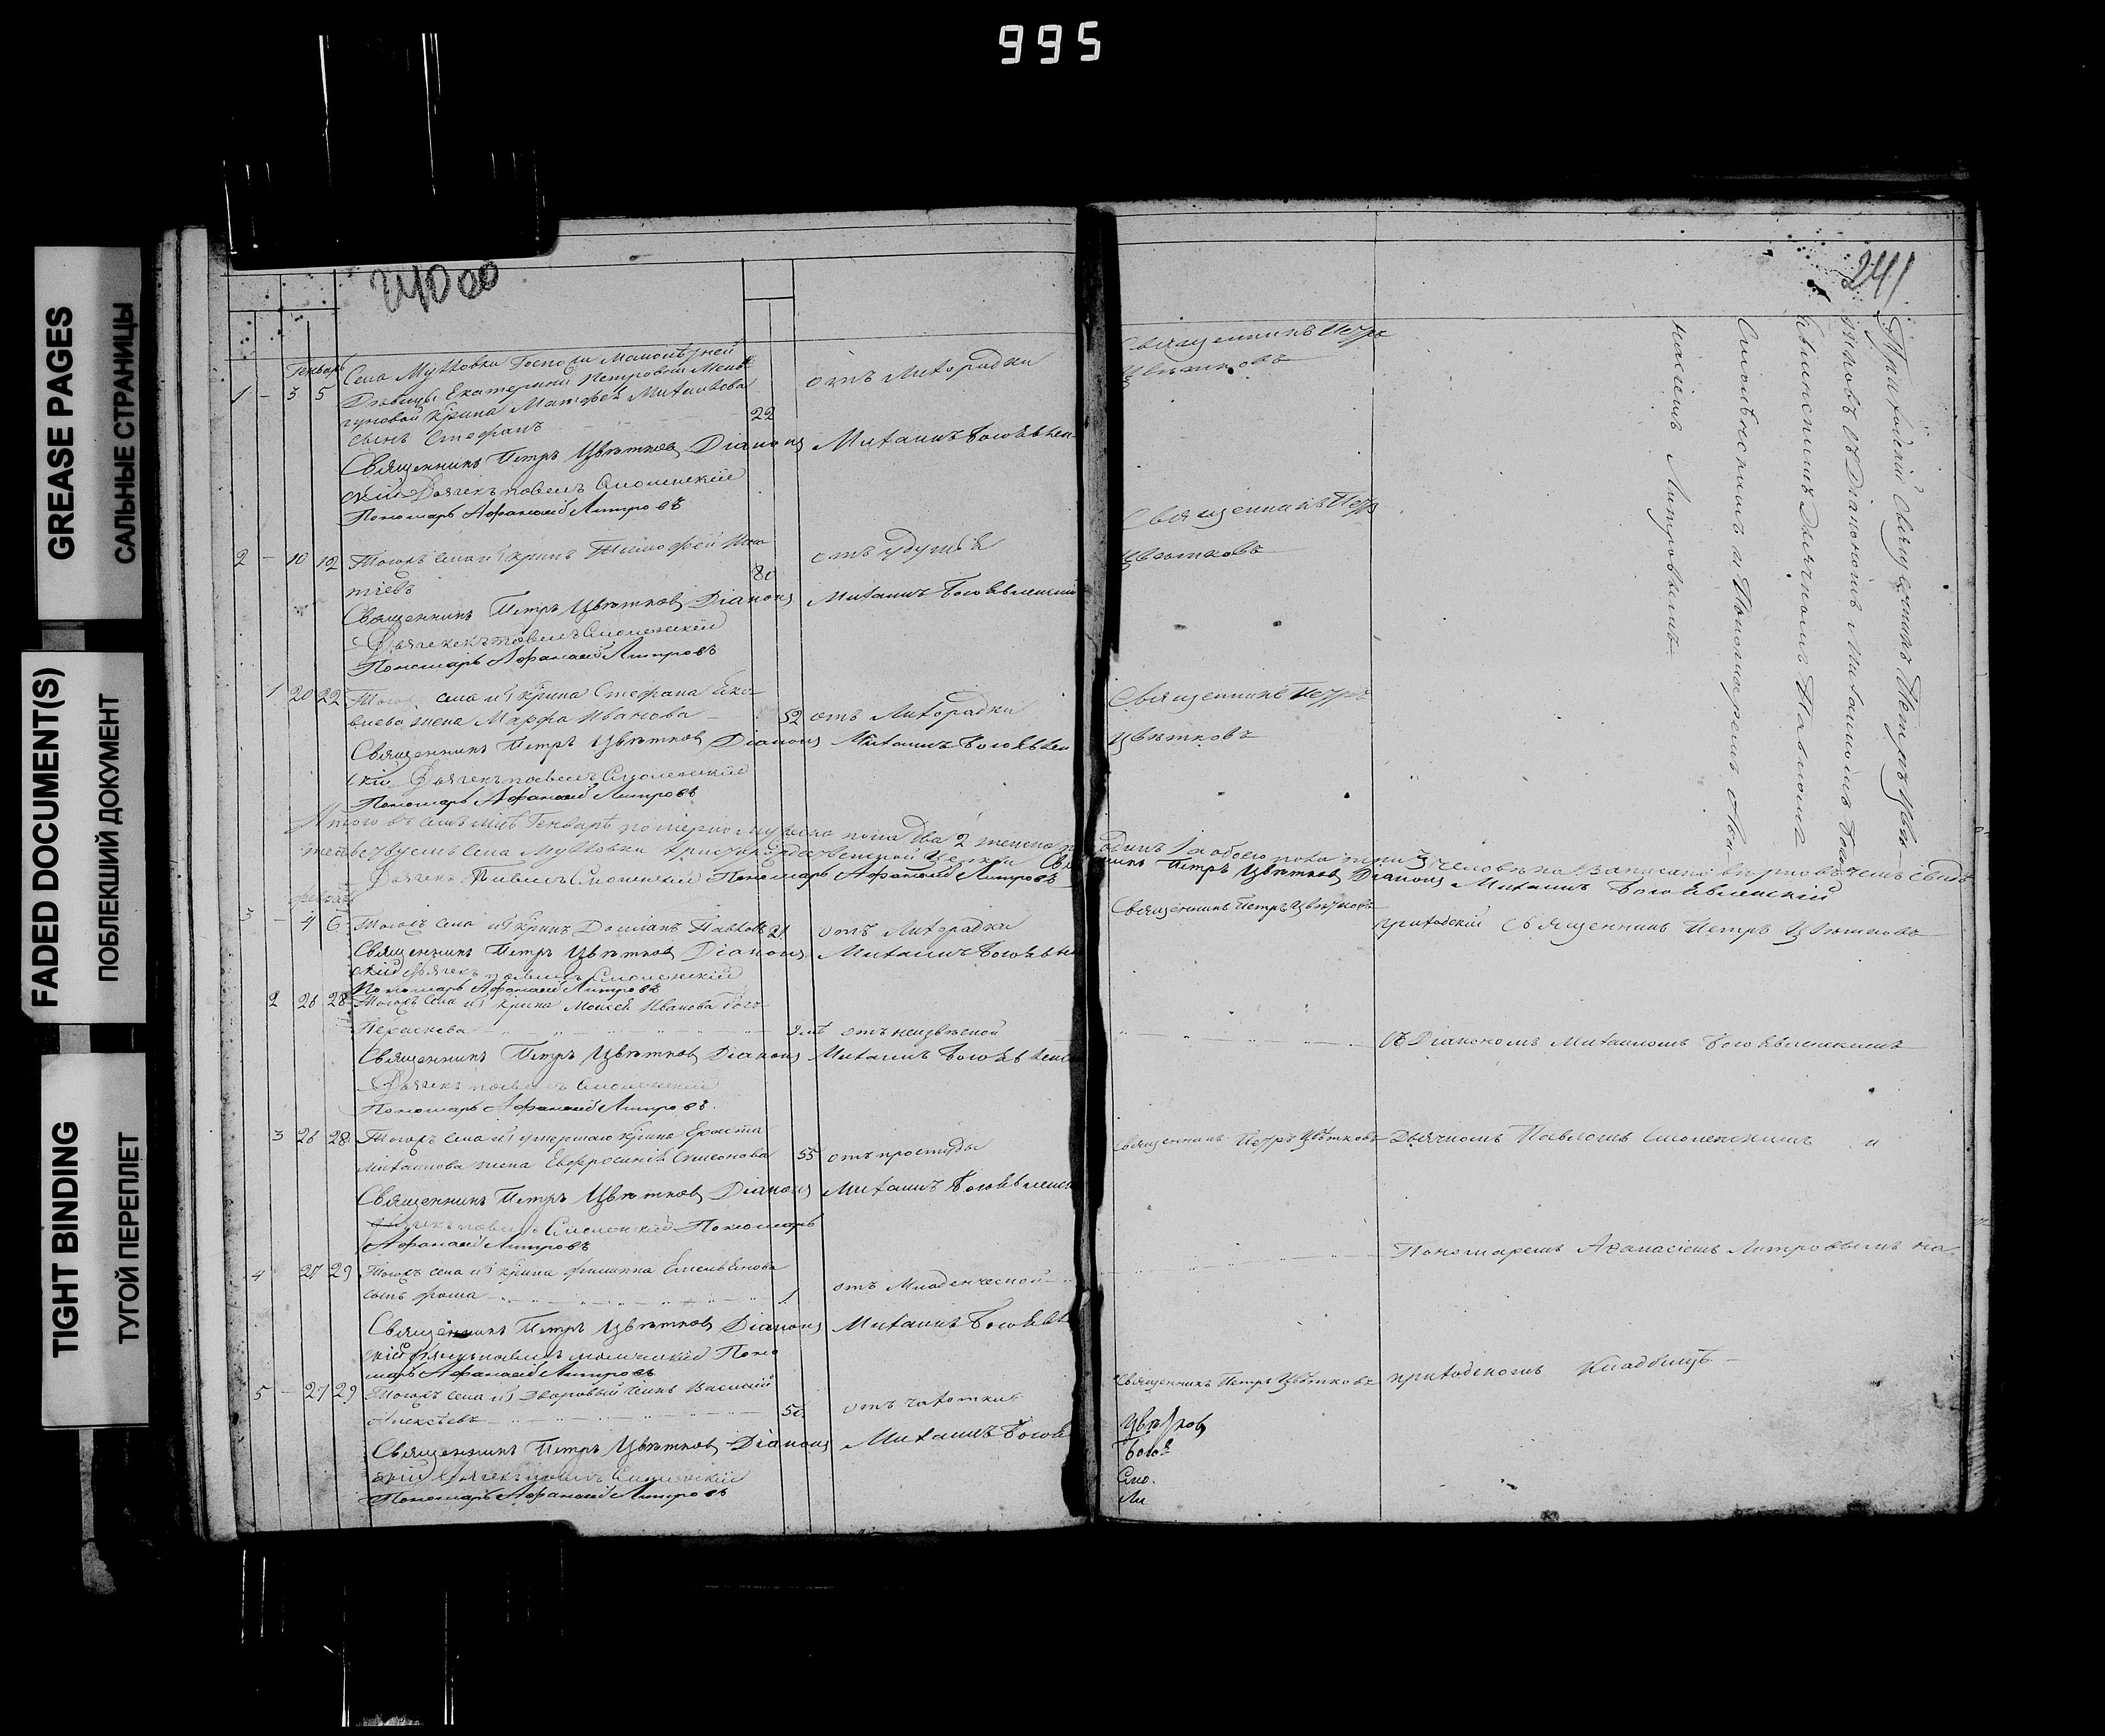 995
GREASE PAGES
САЛЬНЫЕ СТРАНИЦЫ
FADED DOCUMENT(S)
ПОБЛЕКШИЙ ДОКУМЕНТ
TIGHT BINDING
ТУГОЙ ПЕРЕПЛЕТ
241
Генварь
Села Муховки Госпожи
Дѣвицы Екатерины Петровны
крина Матфея Михайлова
1 - 3 5
сынъ Стефанъ 22
отъ Лихорадки
Священникъ Петръ Цвѣтковъ
Священникъ Петръ Цвѣтковъ Діаконъ Михаилъ Богоявлен
скій Дьячекъ Павелъ Смоленскій
Пономарь Афанасій Литровъ
2 - 10 12 Тогожъ села крнъ Тимофей
80
отъ удушья
Священникъ Петръ
Цвѣтковъ
Священникъ Петръ Цвѣтковъ Діаконъ Михаилъ Богоявленскій
Дьячекъ Павелъ Смоленскій
Пономарь Афанасій Литровъ
1 20 22 Тогожъ села крина Стефана
жена Марфа Иванова 52 отъ Лихорадки
Священникъ Петръ
Цвѣтковъ
Священникъ Петръ Цвѣтковъ Діаконъ Михаилъ Богоявлен
скій Дьячекъ Павелъ Смоленскій
Пономарь Афанасій Литровъ
Итого въ семъ мцѣ Генварѣ померло мужеска пола два 2 женска одинъ 1 а обоего пола три 3 человѣка записано вѣрно въ чемъ свидѣ
тельствуемъ Села Муховки Христорождественской Церкви Священникъ Петръ Цвѣтковъ Діаконъ Михаилъ Богоявленскій
Дьячекъ Павелъ Смоленскій Пономарь Афанасій Литровъ
3 - 4 6 Тогожъ села крнъ 21 отъ Лихорадки
Священникъ Петръ Цвѣтковъ
Приходскій Священникъ Петръ Цвѣтковъ
Священникъ Петръ Цвѣтковъ Діаконъ Михаилъ Богоявлен
скій Дьячекъ Павелъ Смоленскій
Пономарь Афанасій Литровъ
2 26 28 Тогожъ села крина Моисея Иванова
отъ неизвѣсной
Съ Діакономъ Михаиломъ Богоявленскимъ
Священникъ Петръ Цвѣтковъ Діаконъ Михаилъ Богоявленс
Дьячекъ Павелъ Смоленскій
Пономарь Афанасій Литровъ
3 26 28 Тогожъ села умершаго крина
Михайлова жена Евфросинія Симеонова 55 отъ простуды
Священникъ Петръ Цвѣтковъ
Дьячкомъ Павломъ Смоленскимъ и
Священникъ Петръ Цвѣтковъ Діаконъ Михаилъ Богоявленс
Дьячекъ Павелъ Смоленскій Пономарь
Афанасій Литровъ
4 27 29 Тогожъ села крина Филиппа Емельянова
сынъ Фома 1
отъ Младенческой
Пономаремъ Афанасіемъ Литровымъ на
Священникъ Петръ Цвѣтковъ Діаконъ Михаилъ Богоявл
скій Дьячекъ Павелъ Смоленскій Поно
марь Афанасій Литровъ
5 - 27 29 Тогожъ села Дворовый Василій
Алексѣевъ 50
отъ чахотки
Священникъ Петръ Цвѣтковъ
приходскомъ Кладбищѣ
Священникъ Петръ Цвѣтковъ Діаконъ Михаилъ Богояв
скій Дьячекъ Павелъ Смоленскій
Пономарь Афанасій Литровъ
Цвѣтков
Богоя
Смо.
Ли
Приходскій Священникъ Петръ Цвѣт
ковъ Съ Діакономъ Михаиломъ Богоя
вленскимъ Дьячкомъ Павломъ
Смоленскимъ и Пономаремъ Афа
насіемъ Литровымъ